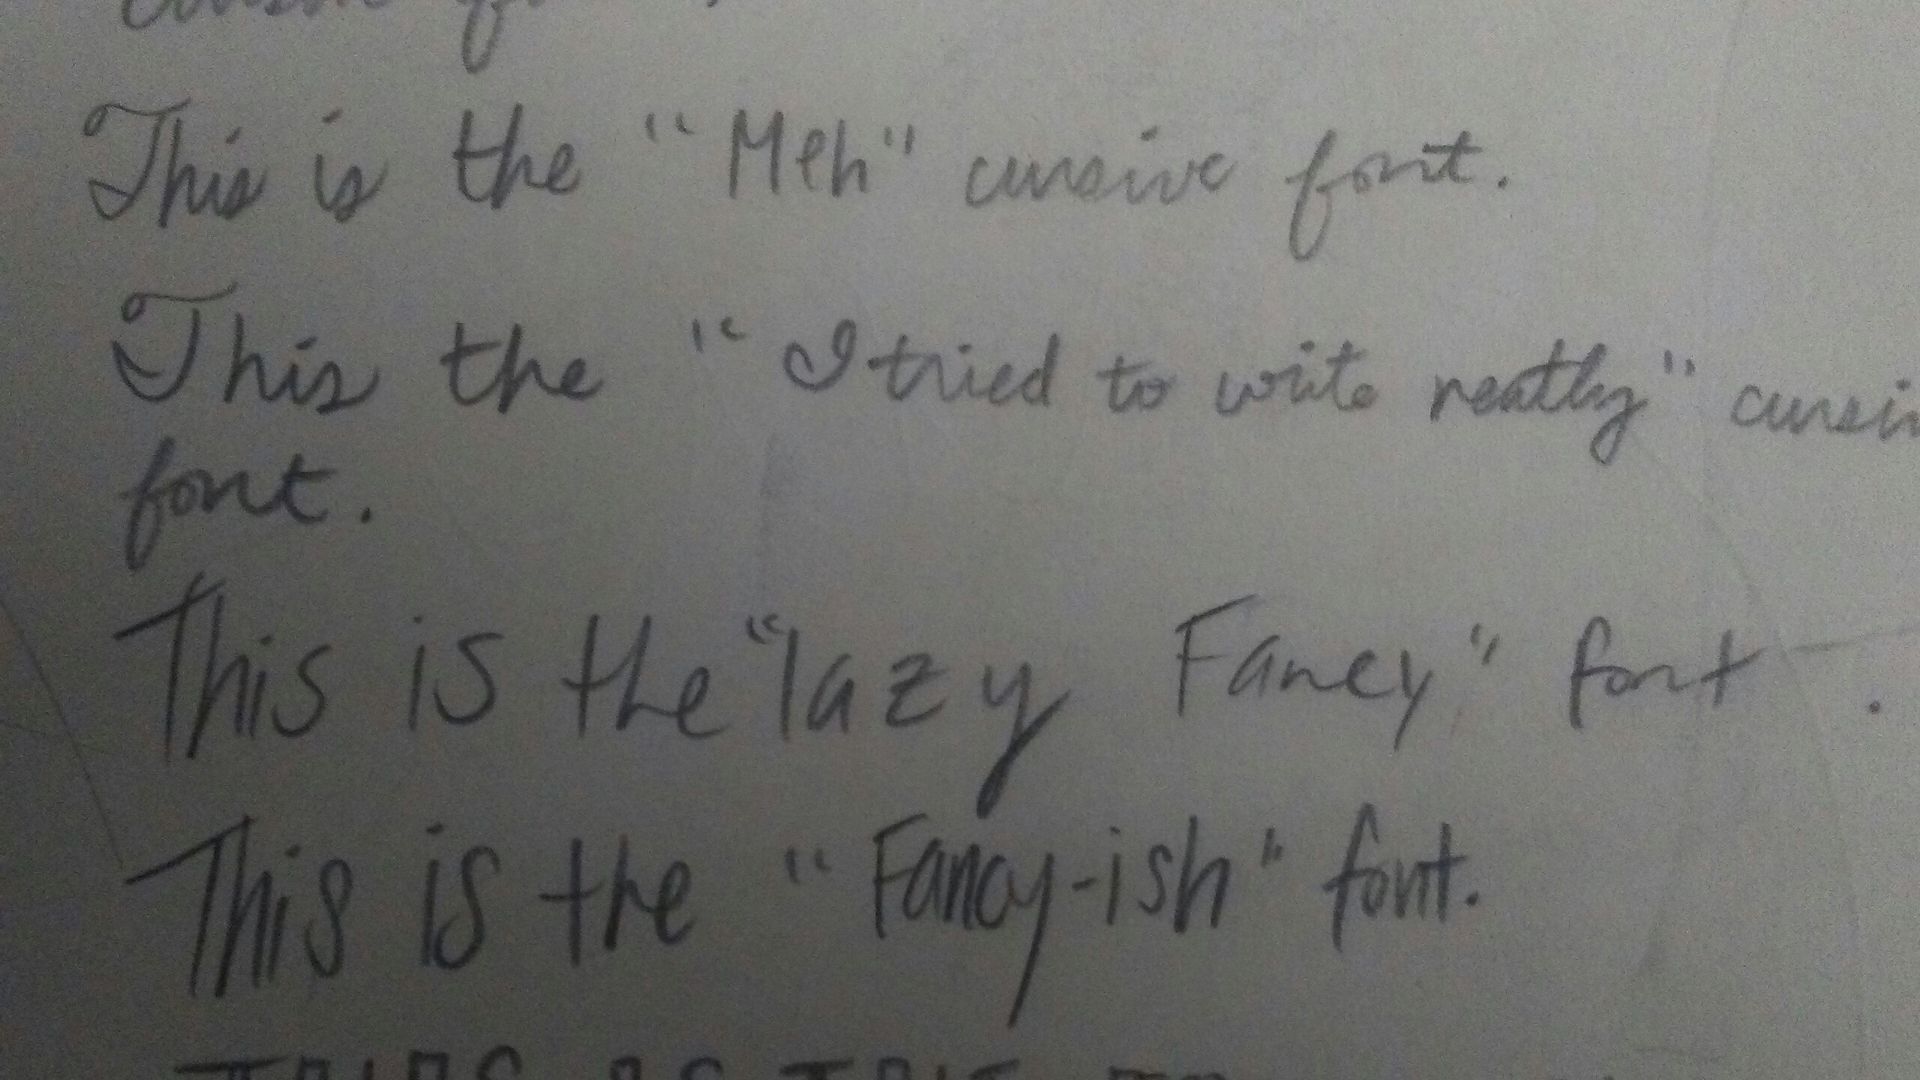 This is the "Meh" cursive font.
This the "I tried to write neatly"
font.
This is the "lazy Fancy" font.
This is the "Fancy-ish" font.